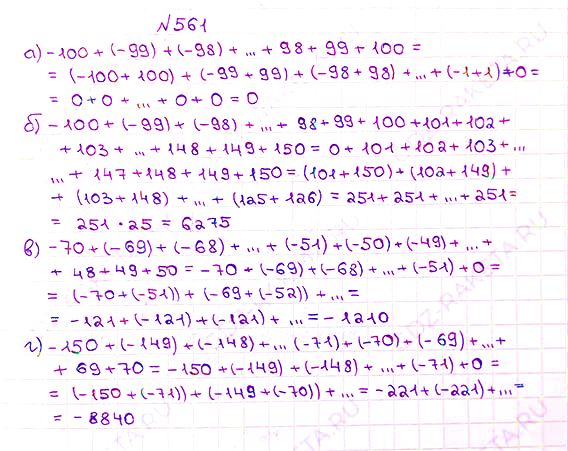 №561
а) -100 + (-99) + (-98) + ... + 98 + 99 + 100 =
= (-100 + 100) + (-99 + 99) + (-98 + 98) + ... + (-1+1) + 0 =
= 0 + 0 + ... + 0 + 0 = 0
б) -100 + (-99) + (-98) + ... + 98 + 99 + 100 + 101 + 102 +
+ 103 + ... + 148 + 149 + 150 = 0 + 101 + 102 + 103 + ...
... + 147 + 148 + 149 + 150 = (101 + 150) + (102 + 149) +
+ (103 + 148) + ... + (125 + 126) = 251 + 251 + ... + 251 =
= 251 · 25 = 6275
в) -70 + (-69) + (-68) + ... + (-51) + (-50) + (-49) + ... +
+ 48 + 49 + 50 = -70 + (-69) + (-68) + ... + (-51) + 0 =
= (-70 + (-51)) + (-69 + (-52)) + ... =
= -121 + (-121) + (-121) + ... = -1210
г) -150 + (-149) + (-148) + ... (-71) + (-70) + (-69) + ... +
+ 69 + 70 = -150 + (-149) + (-148) + ... + (-71) + 0 =
= (-150 + (-71)) + (-149 + (-70)) + ... = -221 + (-221) + ... =
= -8840